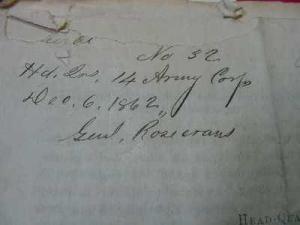 No 32
Hd. Qrs. 14 Army Corp
Dec. 6. 1862
Genl. Rosecrans
HEAD-QUA